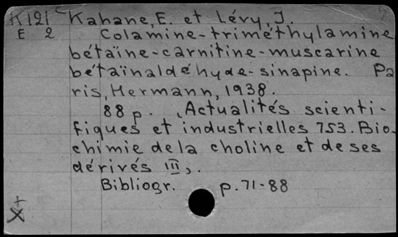 K121 Kahane, E. et Lévy, J.
E 2 Colamine-triméthylamine
bétaïne-carnitine-muscarine
bétaïnaldéhyde-sinapine. Pa
ris, Hermann, 1938.
88 p. (Actualités scienti-
fiques et industrielles 753. Bio-
chimie de la choline et de ses
dérivés III).
Bibliogr. p. 71-88